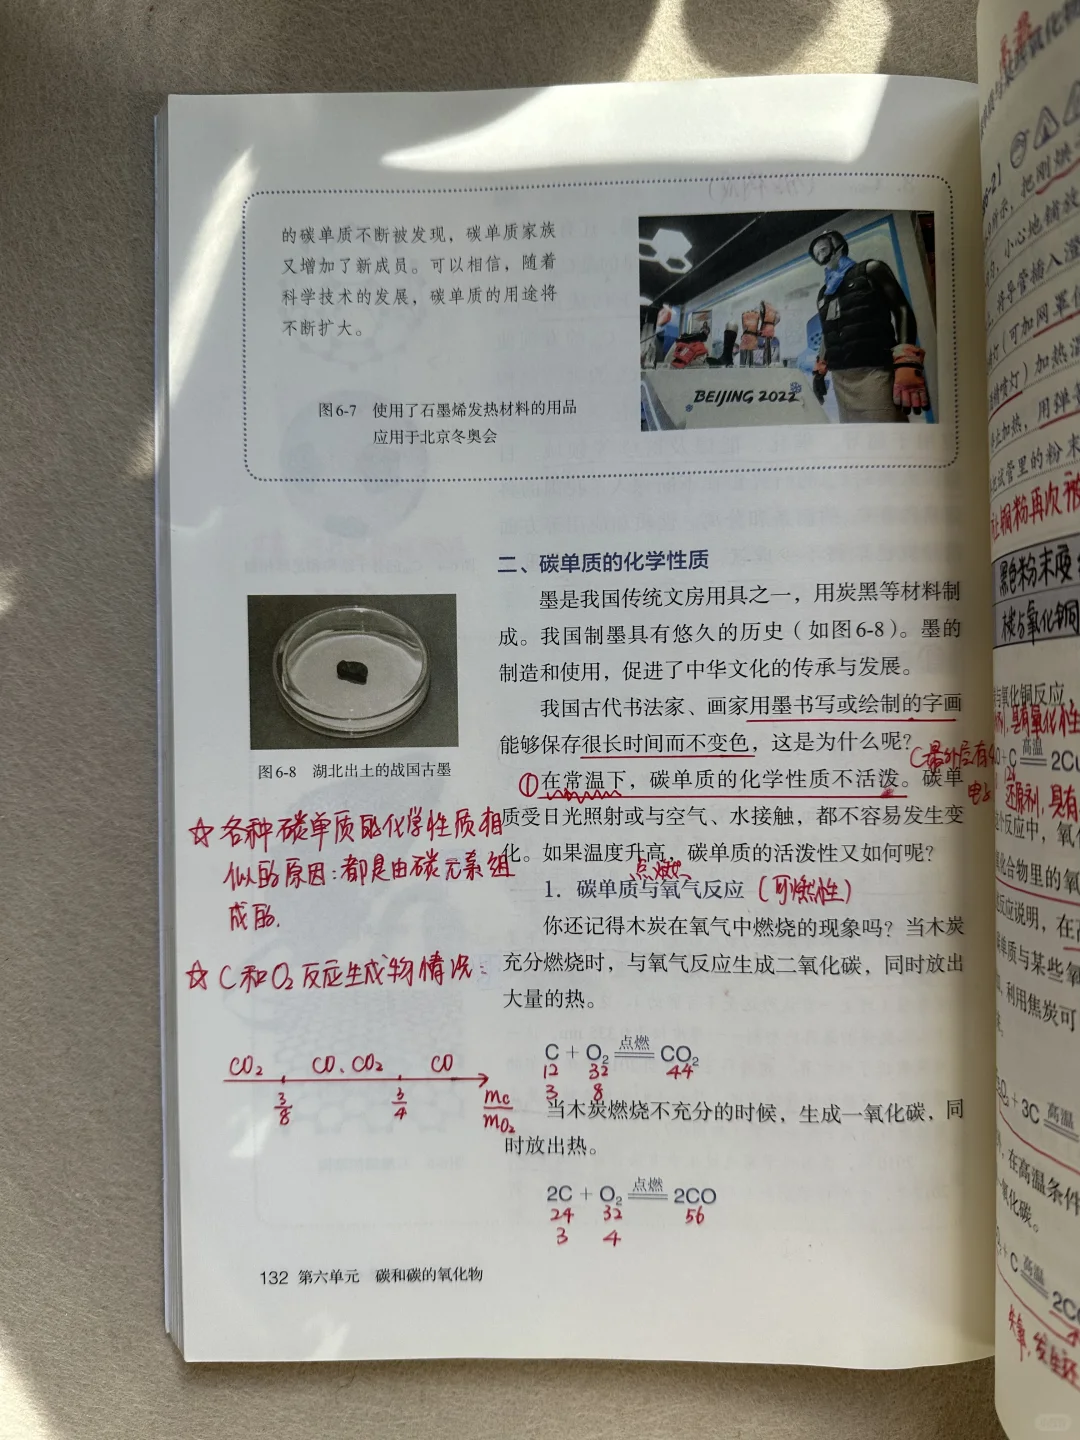 的碳单质不断被发现，碳单质家族
又增加了新成员。可以相信，随着
科学技术的发展，碳单质的用途将
不断扩大。
BEIJING 2022
图6-7 使用了石墨烯发热材料的用品
应用于北京冬奥会
二、碳单质的化学性质
墨是我国传统文房用具之一，用炭黑等材料制
成。我国制墨具有悠久的历史（如图6-8）。墨的
制造和使用，促进了中华文化的传承与发展。
我国古代书法家、画家用墨书写或绘制的字画
能够保存很长时间而不变色，这是为什么呢？
图6-8 湖北出土的战国古墨
①在常温下，碳单质的化学性质不活泼。碳单
质受日光照射或与空气、水接触，都不容易发生变
化。如果温度升高，碳单质的活泼性又如何呢？
☆各种碳单质的化学性质相
似的原因：都是由碳元素组
成的.
点燃
1. 碳单质与氧气反应（可燃性）
你还记得木炭在氧气中燃烧的现象吗？当木炭
充分燃烧时，与氧气反应生成二氧化碳，同时放出
大量的热。
☆C和O₂反应生成物情况：
CO₂ CO、CO₂ CO
3/8 3/4 mc/mO₂
点燃
C + O₂ ══ CO₂
12 32 44
3 8
当木炭燃烧不充分的时候，生成一氧化碳，同
时放出热。
点燃
2C + O₂ ══ 2CO
24 32 56
3 4
132 第六单元 碳和碳的氧化物
把刚烘
小心地铺放
将导管插入澄
（可加网罩
加热
加热，用弹
试管里的粉末
铜粉再次被
黑色粉末
碳与氧化铜
氧化铜反应
具有氧化性
高温
还原剂，具有
个反应中，氧
化合物里的氧
反应说明，在
单质与某些氧
利用焦炭可
+ 3C 高温
在高温条件
氧化碳。
+ C 高温
失氧，发生还